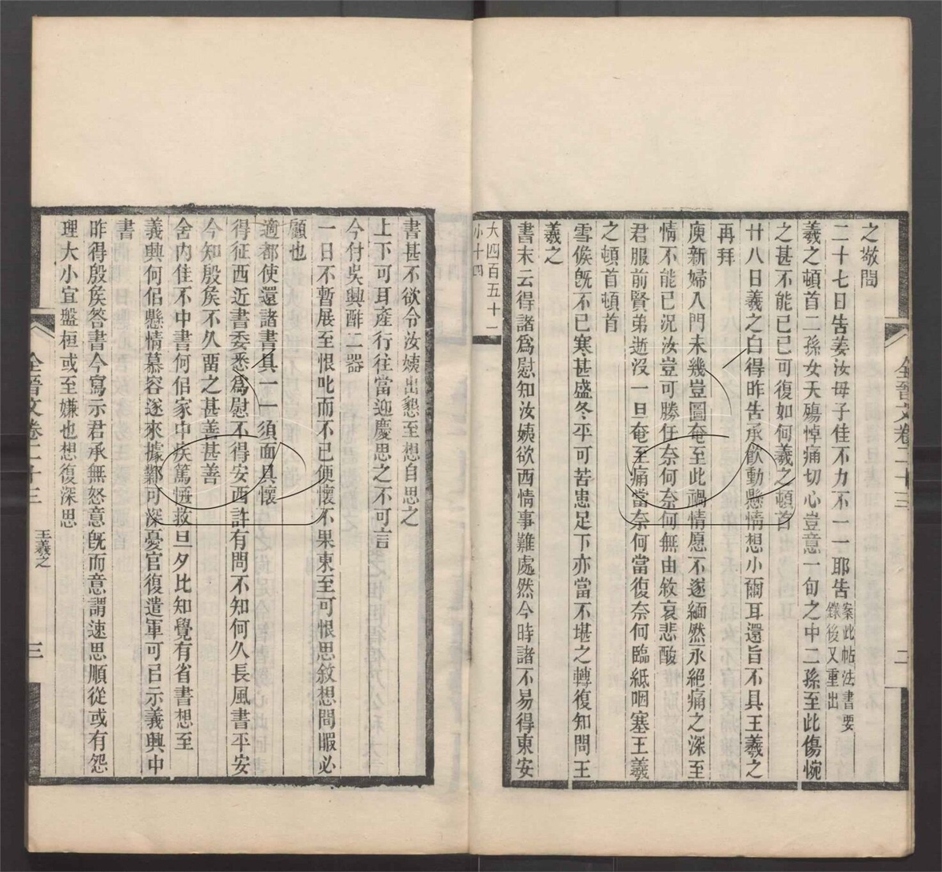 之敬問
二十七日告姜汝母子佳不力不一一耶告案此帖法書要錄後又重出
羲之頓首二孫女夭殤悼痛切心豈意一旬之中二孫至此傷惋
之甚不能已已可復如何羲之頓首
廿八日羲之白得昨告承飲動懸情想小爾耳還旨不具王羲之
再拜
庾新婦入門未幾豈圖奄至此禍情願不遂緬然永絕痛之深至
情不能已況汝豈可勝任奈何奈何無由敘哀悲酸
君服前賢弟逝沒一旦奄至痛當奈何當復奈何臨紙咽塞王羲
之頓首頓首
雪候旣不已寒甚盛冬平可苦患足下亦當不堪之轉復知問王
羲之
書末云得諸爲慰知汝姨欲西情事難處然今時諸不易得東安
大四百五十一
小十四
全晉文卷二十三
二
書甚不欲令汝姨出懇至想自思之
上下可耳產行往當迎慶思之不可言
今付吳興酢二器
一日不暫展至恨叱而不已便懷不果東至可恨思敘想閒暇必
顧也
適都使還諸書具一一須面具懷
得征西近書委悉爲慰不得安西許有問不知何久長風書平安
今知殷侯不久畱之甚善甚善
舍內佳不中書何佀家中疾篤悽救旦夕比知覺有省書想至
義興何佀懸情慕容遂來據鄴可深憂官復遣軍可㠯示義興中
書
昨得殷侯答書今寫示君承無怒意旣而意謂速思順從或有怨
理大小宜盤桓或至嫌也想復深思
全晉文卷二十三
王羲之
三